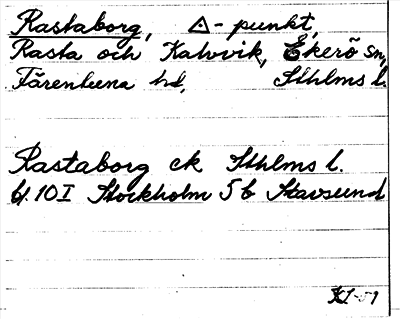 Rastaborg, △-punkt,
Rasta och Kalvvik, Ekerö sn,
Färentuna hd, Sthlms l.
Rastaborg ek Sthlms l.
bl. 10I Stockholm 5b Stavsund